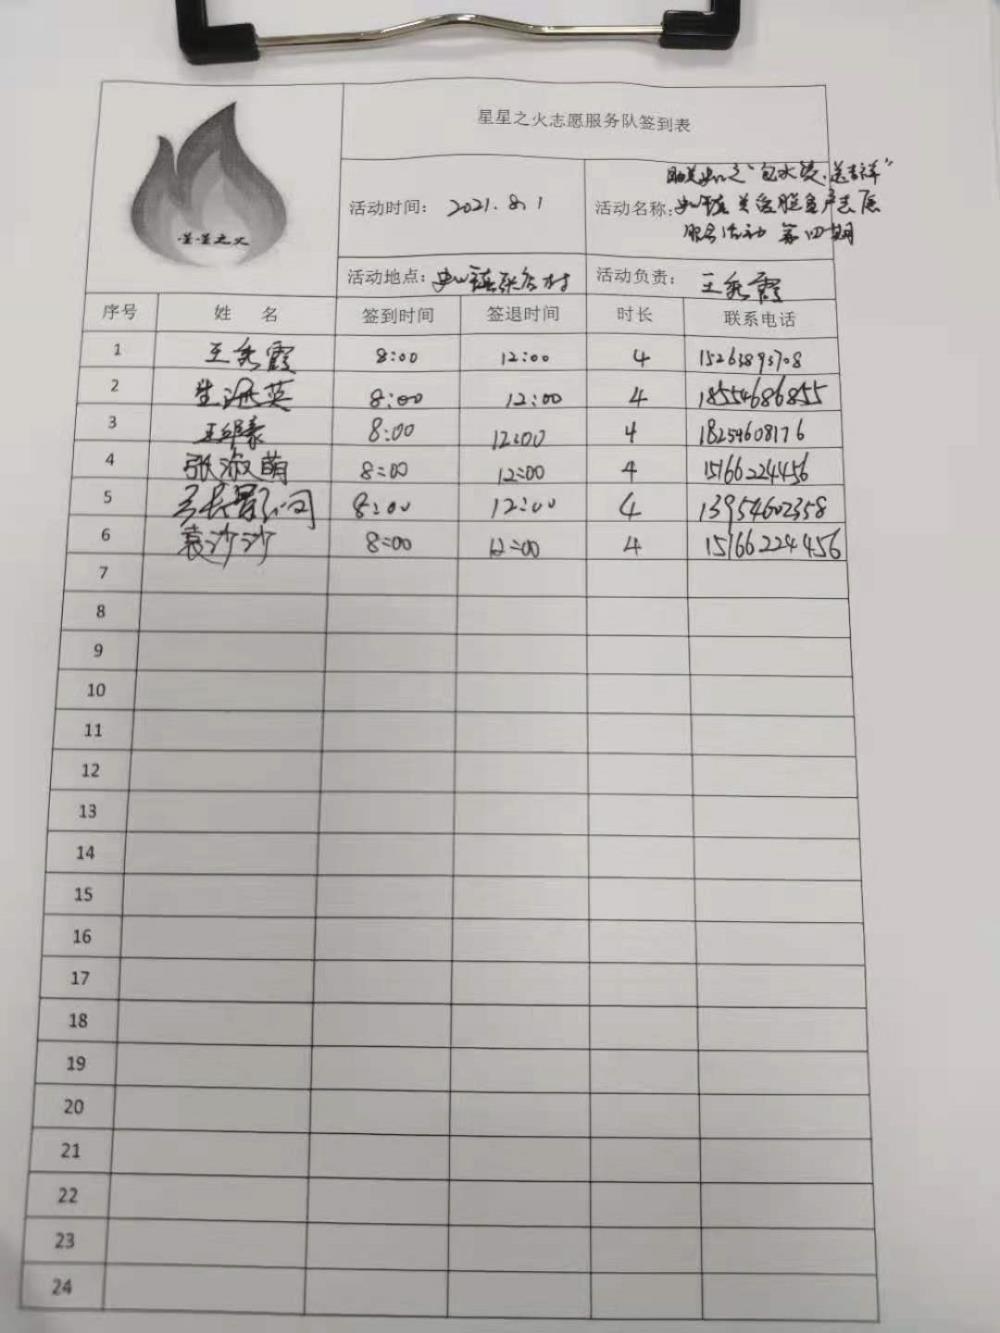 星星之火志愿服务队签到表
星星之火
活动时间： 2021.8.1
活动名称： 之"包水饺·送吉祥"
关爱脱贫户志愿
服务活动 第四期
活动地点： 镇张 村
活动负责： 王秀霞
序号 姓 名 签到时间 签退时间 时长 联系电话
1 王秀霞 8:00 12:00 4 15263893708
2 英 8:00 12:00 4 18554686855
3 王 8:00 12:00 4 18254608176
4 张淑萌 8:00 12:00 4 15166224456
5 8:00 12:00 4 13954602358
6 袁沙沙 8:00 12:00 4 15166224456
7
8
9
10
11
12
13
14
15
16
17
18
19
20
21
22
23
24